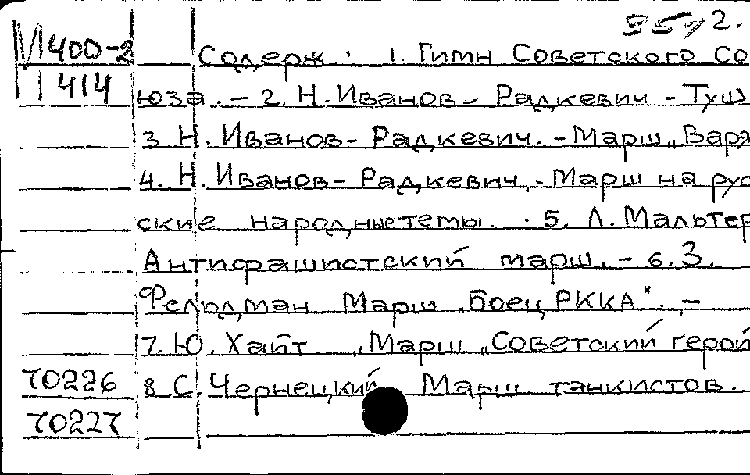 М400-2 Содерж. 1. Гимн Советского Со
414 юза. – 2. Н. Иванов – Радкевич – Туш
3. Н. Иванов – Радкевич. – Марш „Варя
4. Н. Иванов – Радкевич, – Марш на рус
ские народные темы. 5. Л. Мальтер
Антифашистский марш. – 6. З.
Фельдман Марш „Боец РККА". –
7. Ю. Хайт „Марш „Советский герой
70226 8 С. Чернецкий Марш танкистов.
70227